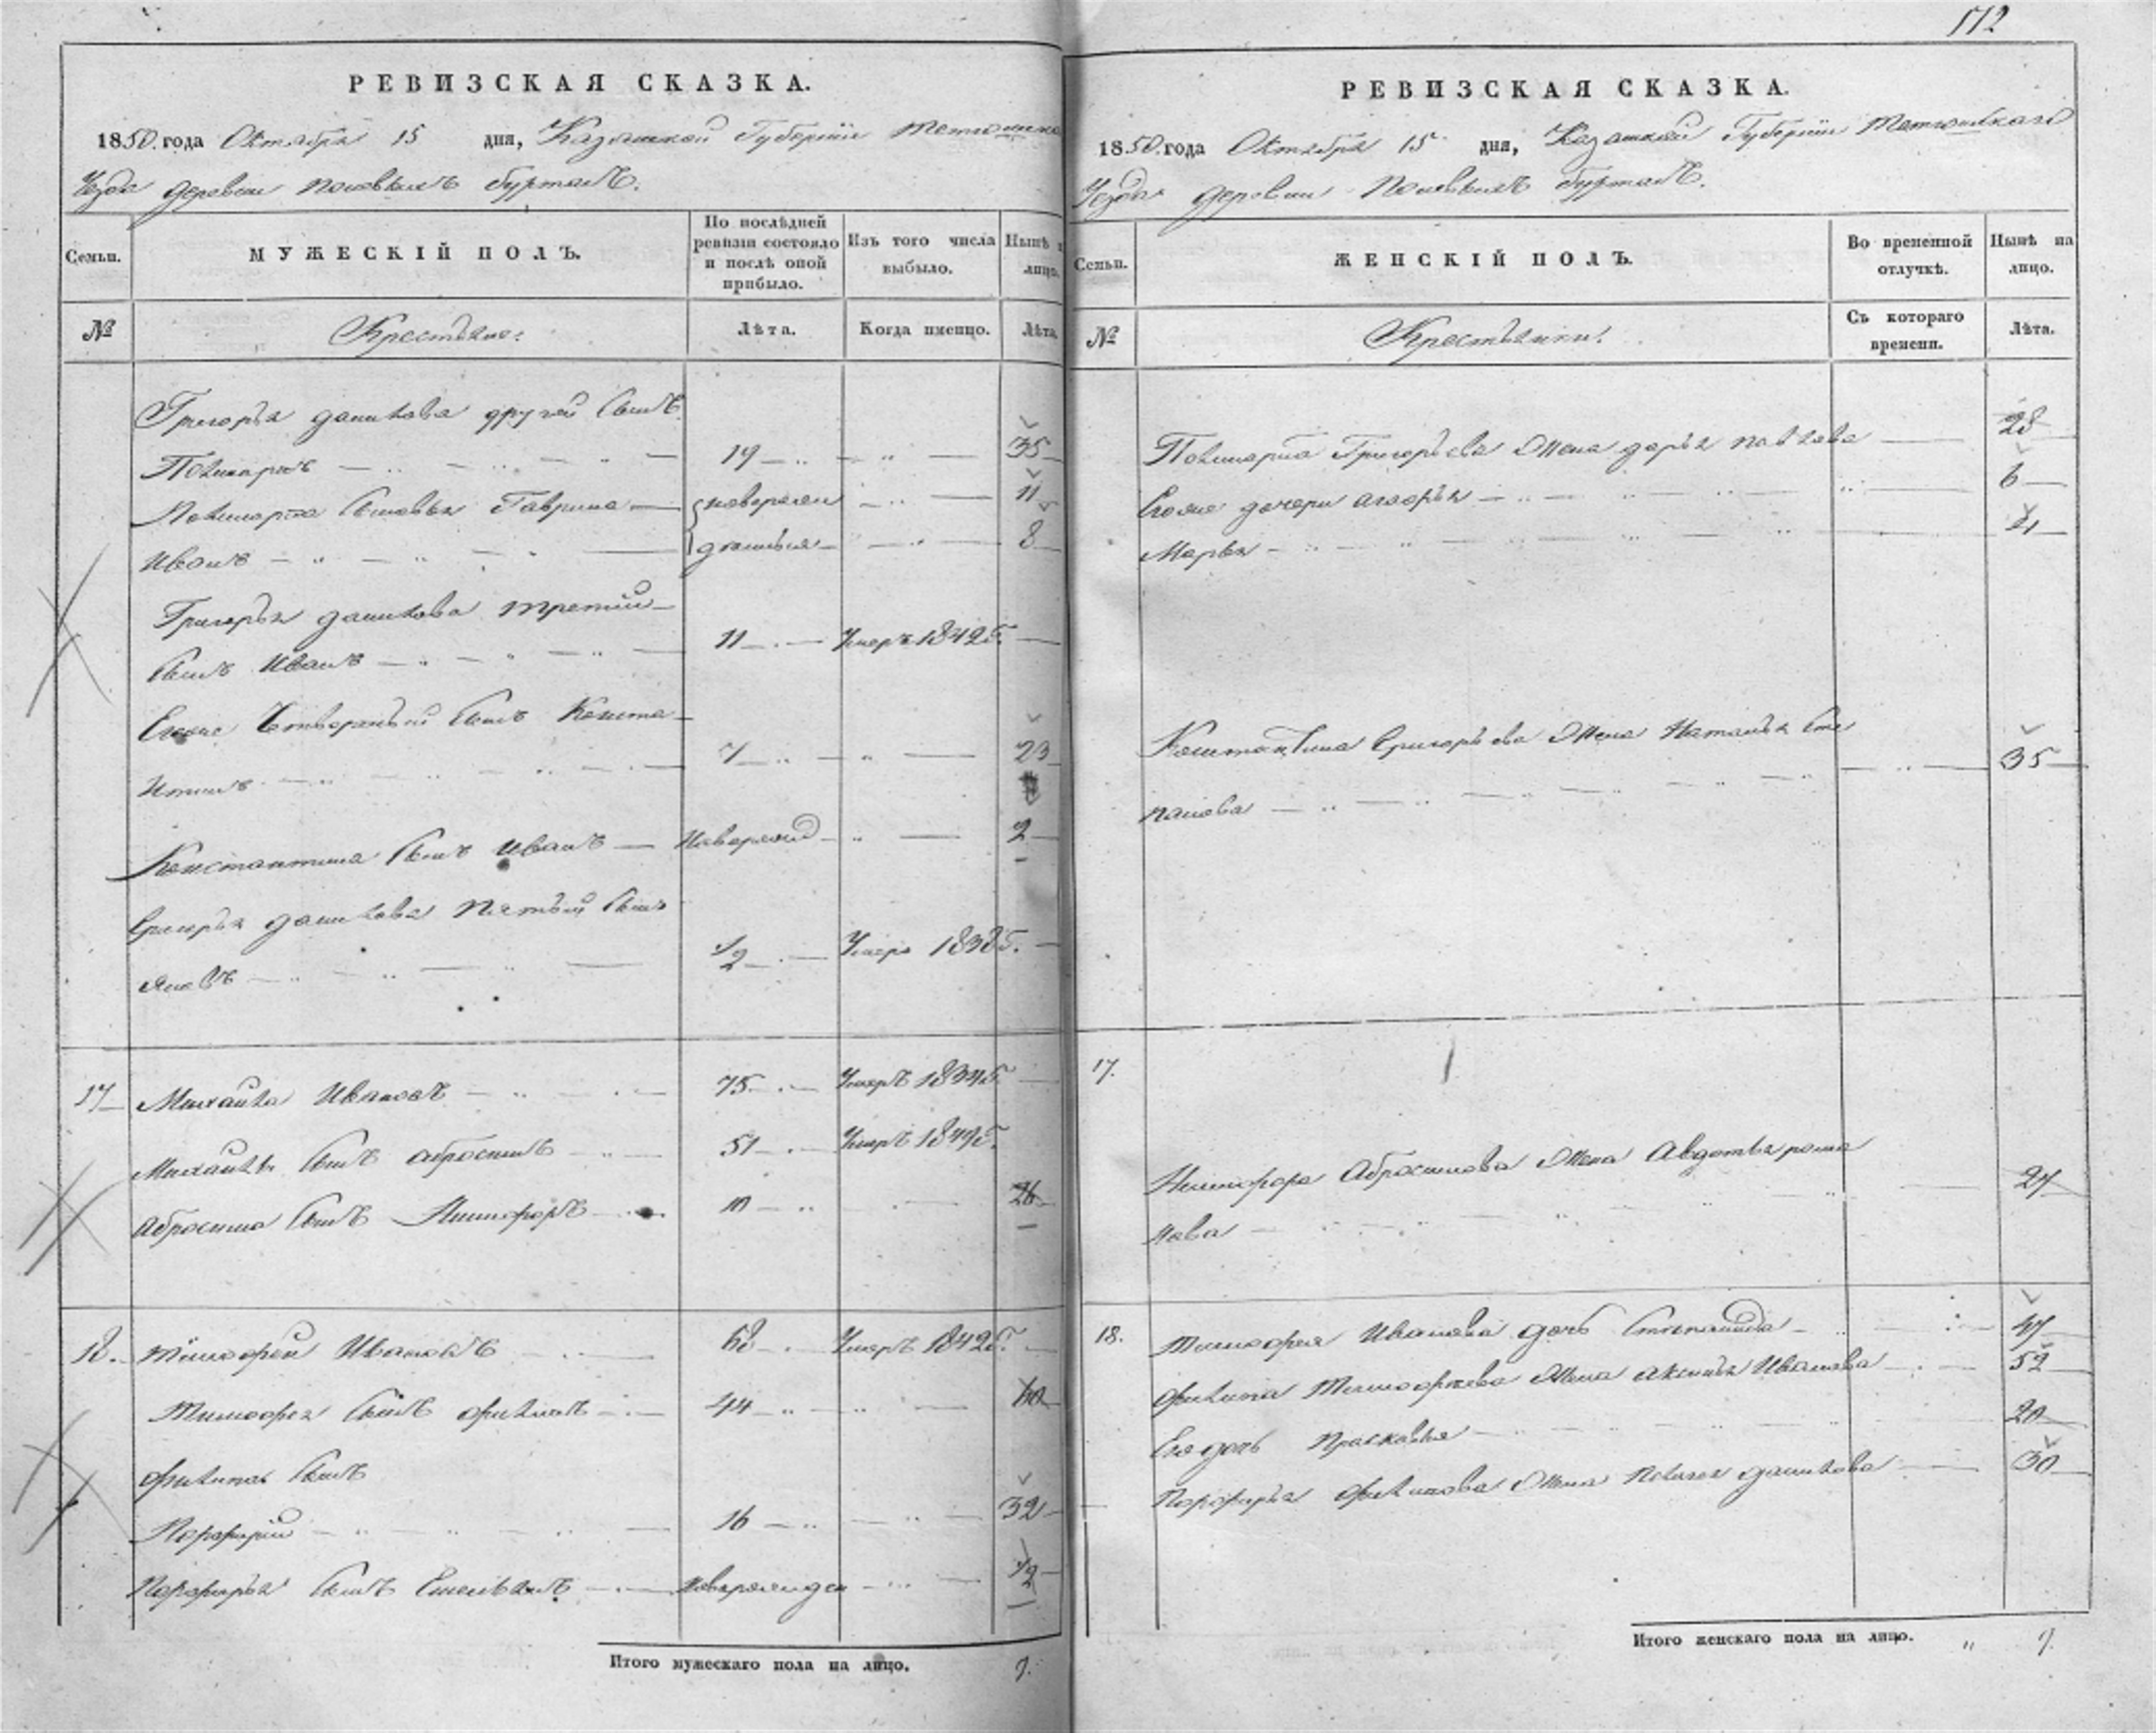 РЕВИЗСКАЯ СКАЗКА.
1850 года Октября 15 дня, Казанской Губернии
Уезда деревни Буртасъ.
Семьи.
МУЖЕСКІЙ ПОЛЪ.
По послѣдней ревизіи состояло и послѣ оной прибыло.
Изъ того числа выбыло.
Нынѣ лицо.
№
Крестьяне:
Лѣта.
Когда именно.
Лѣта.
Григорья данилова другой сынъ
Поликарпъ 19 35
Поликарпа сыновья Гаврила новорожден 11
Иванъ 8
Григорья данилова третій
сынъ Иванъ 11 Умеръ 1842 г.
Егоже Четвертый сынъ Конста
нтинъ 7 23
Константина сынъ Иванъ новорожд 2
Григорья данилова пятый сынъ
Яковъ 1/2 Умеръ
17 Михайла Ивановъ 75 Умеръ
Михайлы сынъ абросимъ 51 Умеръ
Абросима сынъ Никифоръ 10 26
18. Тимофей Ивановъ 68 Умеръ 1842 г.
Тимофея сынъ филипъ 44 60
филипа сынъ
Порфирій 16 32
Порфирья сынъ Емельянъ новорожден 1/2
Итого мужескаго пола на лицо. 9.
512
РЕВИЗСКАЯ СКАЗКА.
1850 года Октября 15 дня, Казанской Губерніи Тетюшскаго
Уезда деревни Буртасъ.
Семьи.
ЖЕНСКІЙ ПОЛЪ.
Во временной отлучкѣ.
Нынѣ на лицо.
№
Крестьянки.
Съ котораго времени.
Лѣта.
Поликарпа Григорьева жена дарья павлова 28
Егоже дочери 6
Марья
Константина Григорьева жена Наталья Сте
панова 35
17.
Никифора Абросимова жена Авдотья рома
нова 27
18. Тимофея Иванова дочь Степанида 47
филипа Тимофеева жена Аксинья Иванова 52
Его дочь Прасковья 20
Порфирья филипова жена данилова 30
Итого женскаго пола на лицо. „ 9.